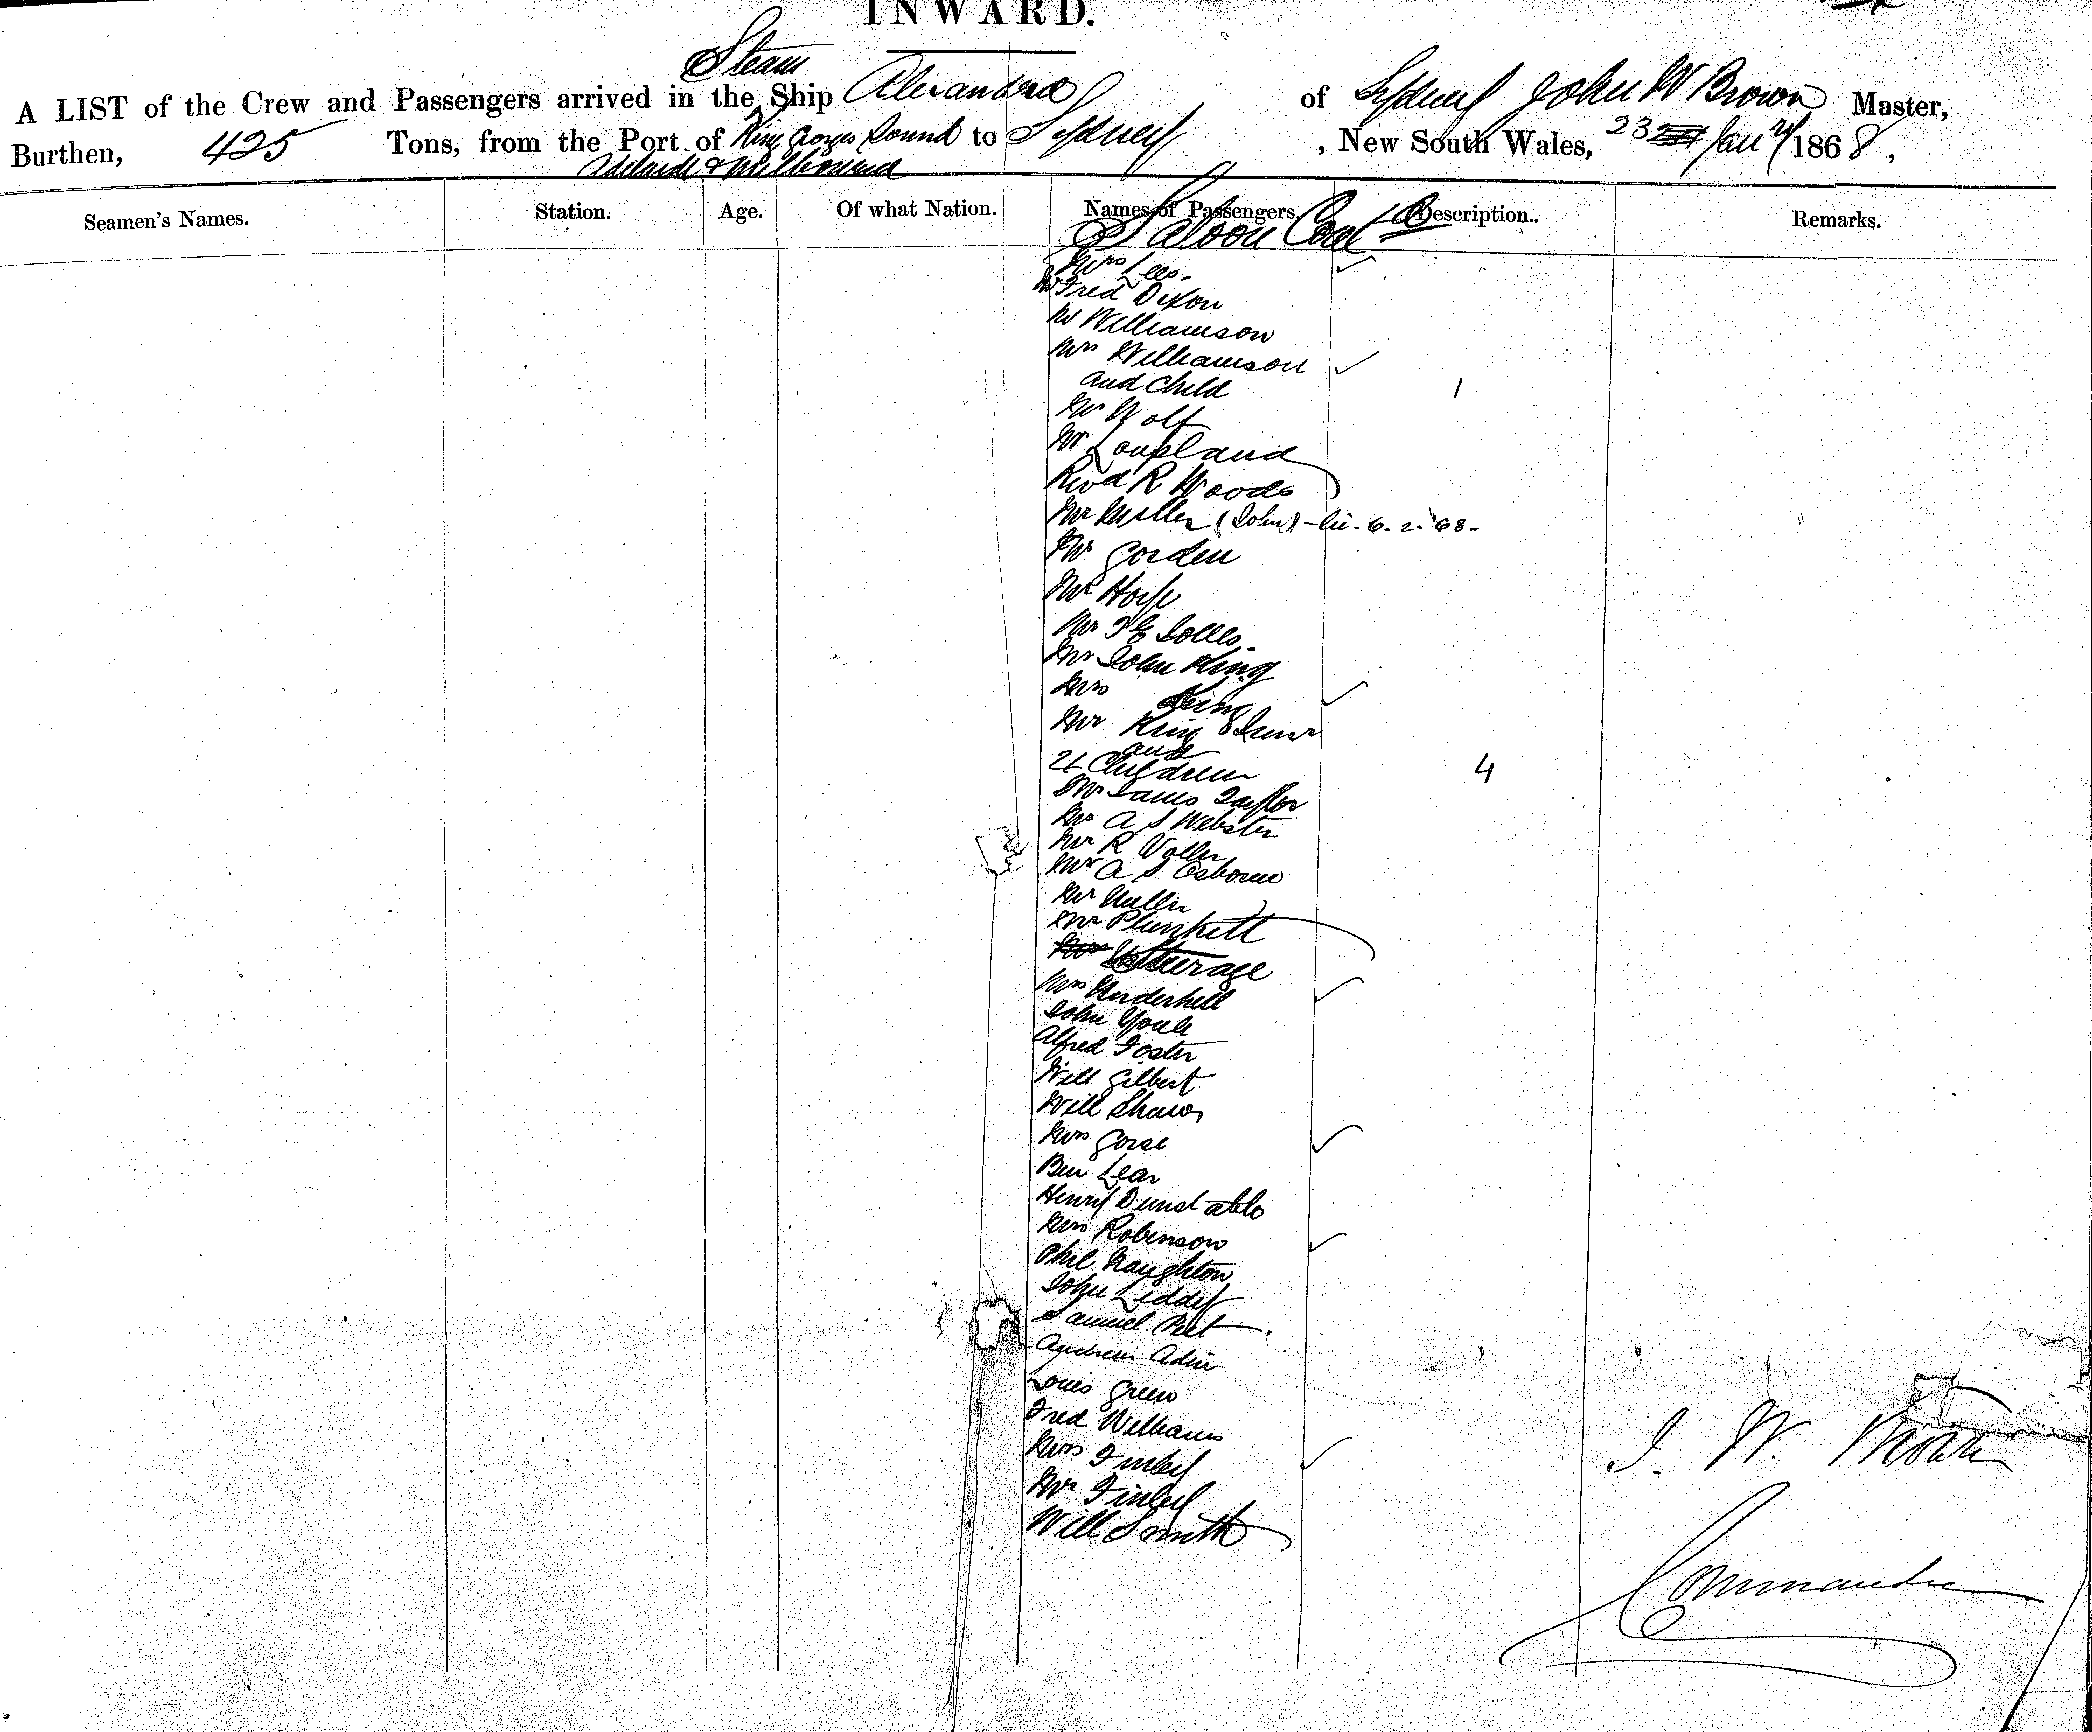 INWARD.
Steam
A LIST of the Crew and Passengers arrived in the Ship Alexandra of Sydney John W Brown Master,
Burthen, 425 Tons, from the Port of King Georges Sound to Sydney, New South Wales, 23 Jany 1868,
Adelaide &
Seamen's Names. Station. Age. Of what Nation. Names of Passengers. Description. Remarks.
Saloon
Mrs Lees.
Mr Fred Dixon
Mr Williamson
Mrs Williamson
and Child 1
Mr Wolf
Mr Loupland
Revd R Woods
Mr Miller (John) 6. 2. 68.
Mr Gorden
Mr
Mr
Mr John King
Mrs King
Mr King Junr
and
4 Children 4
Mr James Taylor
Mr A S Webster
Mr R Voller
Mr A S Osborne
Mr
Mr Plunkett
Steerage
Mrs Underhill
John Youle
Alfred Foster
Will Gilbert
Will Shaw
Mrs Gorse
Ben Lear
Henry Dunstable
Mrs Robinson
Phil Naughton
John Liddy
Samuel
Andrew
Louis Green
Fred Williams
Mrs Finley
Mr Finley
Will Smith
J. W. Brown
Commander